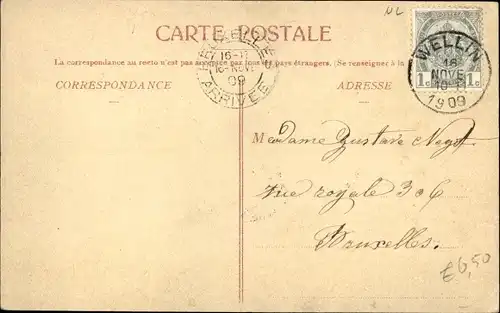 NL
CARTE POSTALE
La correspondance au recto n'est pas acceptée par tous les pays étrangers. (Se renseigner à la
CORRESPONDANCE
ADRESSE
16-NOVE
09
ARRIVEE
WELLIN
16
NOVE
1909
1c 1c
Madame Gustave
rue royale 306
Bruxelles.
£6,50